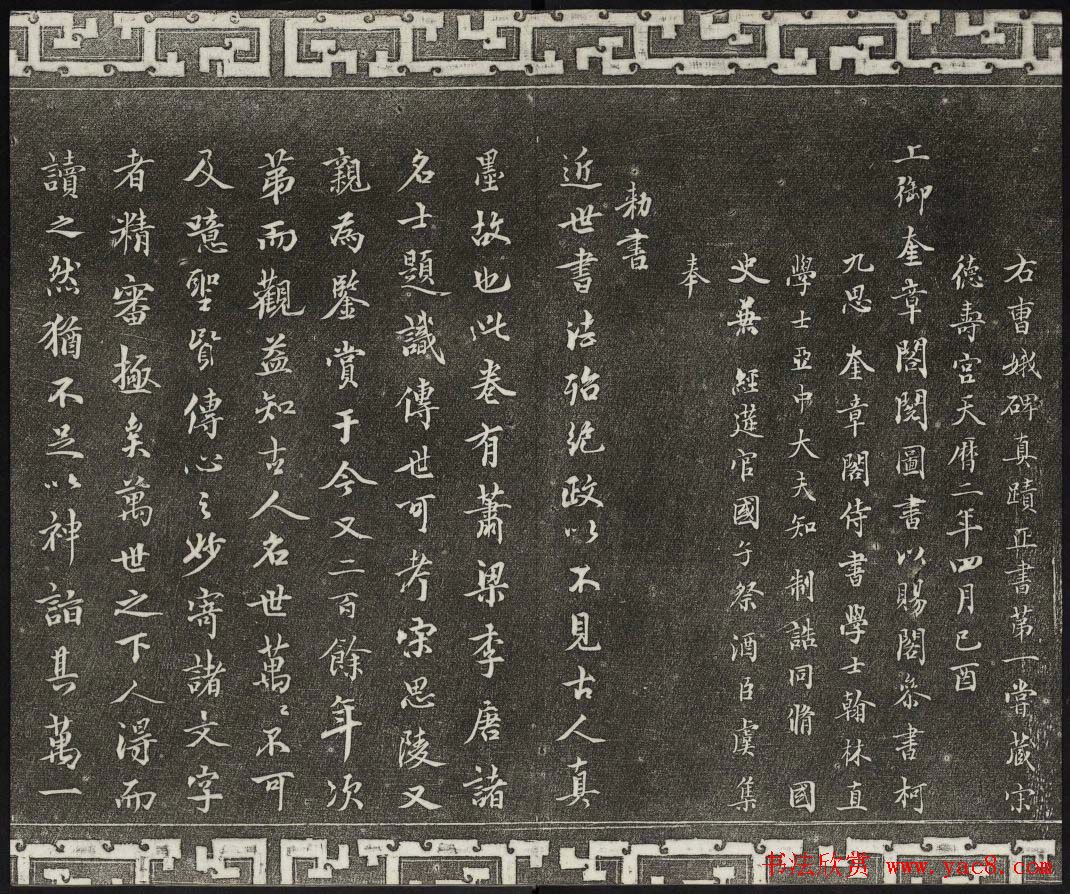 右曹娥碑真蹟正書第一嘗藏宋
德壽宮天曆二年四月己酉
上御奎章閣閱圖書以賜閣參書柯
九思奎章閣侍書學士翰林直
學士亞中大夫知制誥同脩國
史兼經筵官國子祭酒臣虞集
奉
勑書
近世書法殆絕政以不見古人真
墨故也此卷有蕭梁李唐諸
名士題識傳世可考宋思陵又
親為鑒賞于今又二百餘年次
苐而觀益知古人名世萬〻不可
及噫聖賢傳心之妙寄諸文字
者精審極矣萬世之下人得而
讀之然猶不足以神詣其萬一
书法欣赏 www.yac8.com